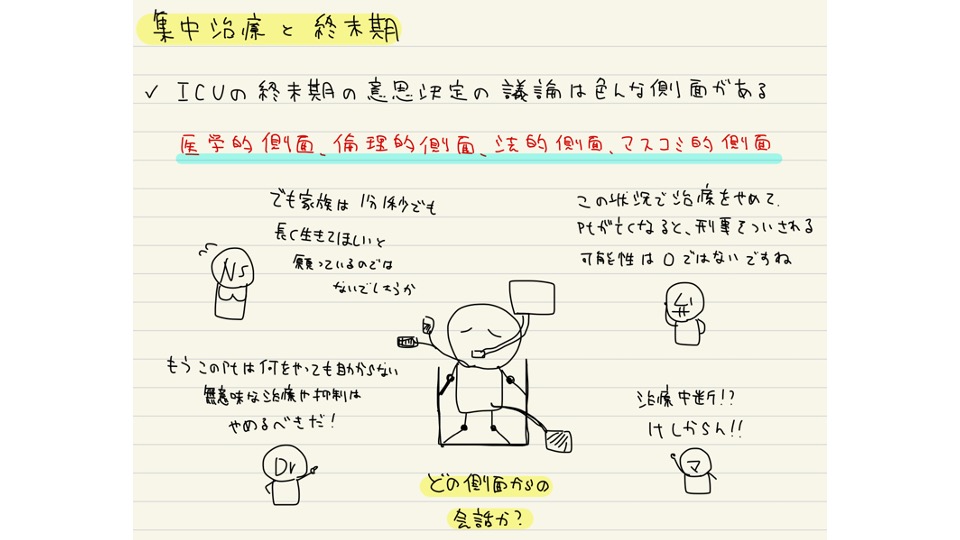 集中治療と終末期
✓ ICUの終末期の意思決定の議論は色んな側面がある
医学的側面、倫理的側面、法的側面、マスコミ的側面
でも家族は1分1秒でも
長く生きてほしいと
願っているのでは
ないでしょうか
Ns
この状況で治療をやめて、
Ptが亡くなると、刑事でついされる
可能性は0ではないですね
弁
もうこのPtは何をやっても助からない
無意味な治療や抑制は
やめるべきだ!
Dr
治療中断!?
けしからん!!
マ
どの側面からの
会話か?